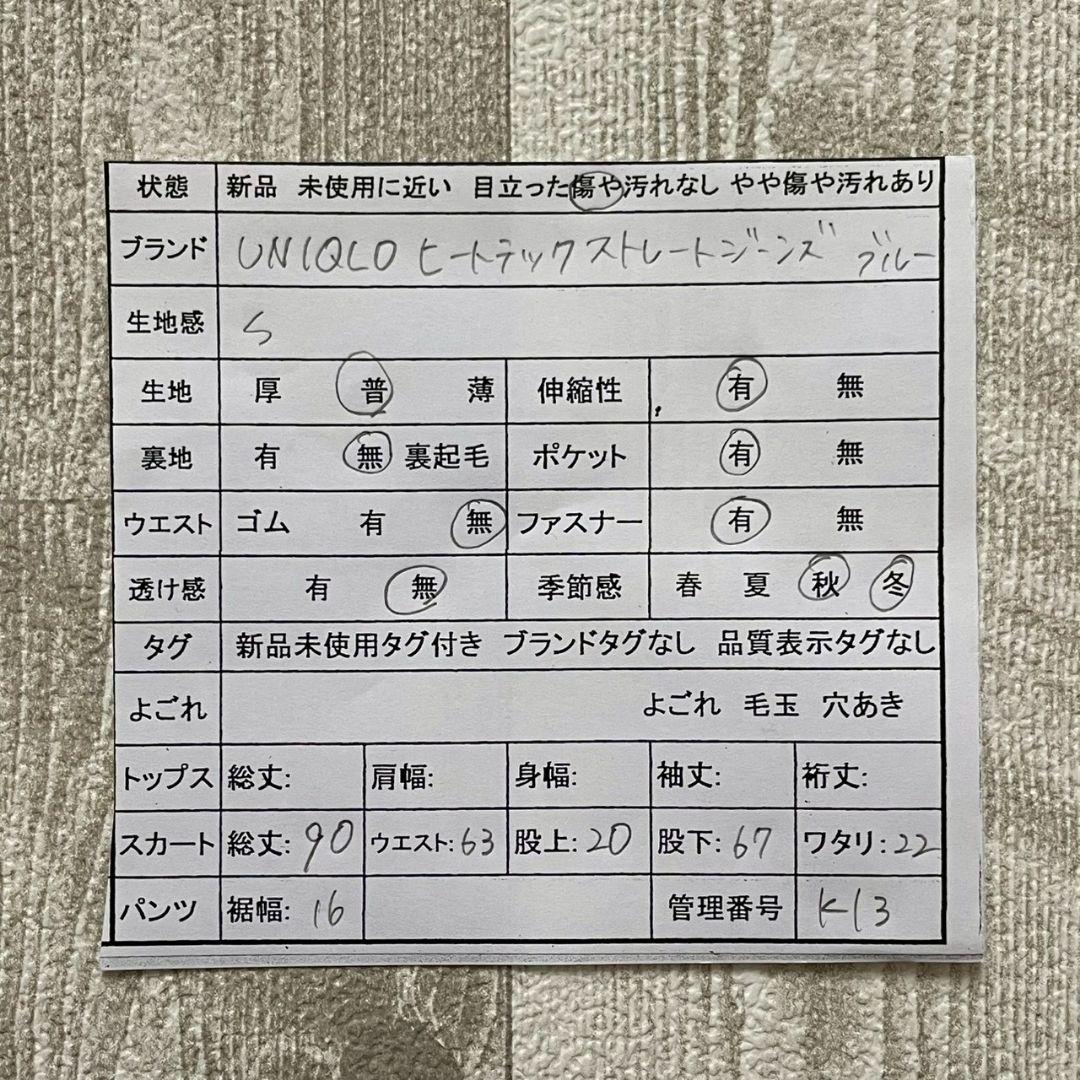 状態 新品 未使用に近い 目立った傷や汚れなし やや傷や汚れあり
ブランド UNIQLO ヒートテックストレートジーンズ ブルー
生地感 S
生地 厚 普 薄 伸縮性 有 無
裏地 有 無 裏起毛 ポケット 有 無
ウエスト ゴム 有 無 ファスナー 有 無
透け感 有 無 季節感 春 夏 秋 冬
タグ 新品未使用タグ付き ブランドタグなし 品質表示タグなし
よごれ よごれ 毛玉 穴あき
トップス 総丈: 肩幅: 身幅: 袖丈: 裄丈:
スカート 総丈: 90 ウエスト: 63 股上: 20 股下: 67 ワタリ: 22
パンツ 裾幅: 16 管理番号 K13